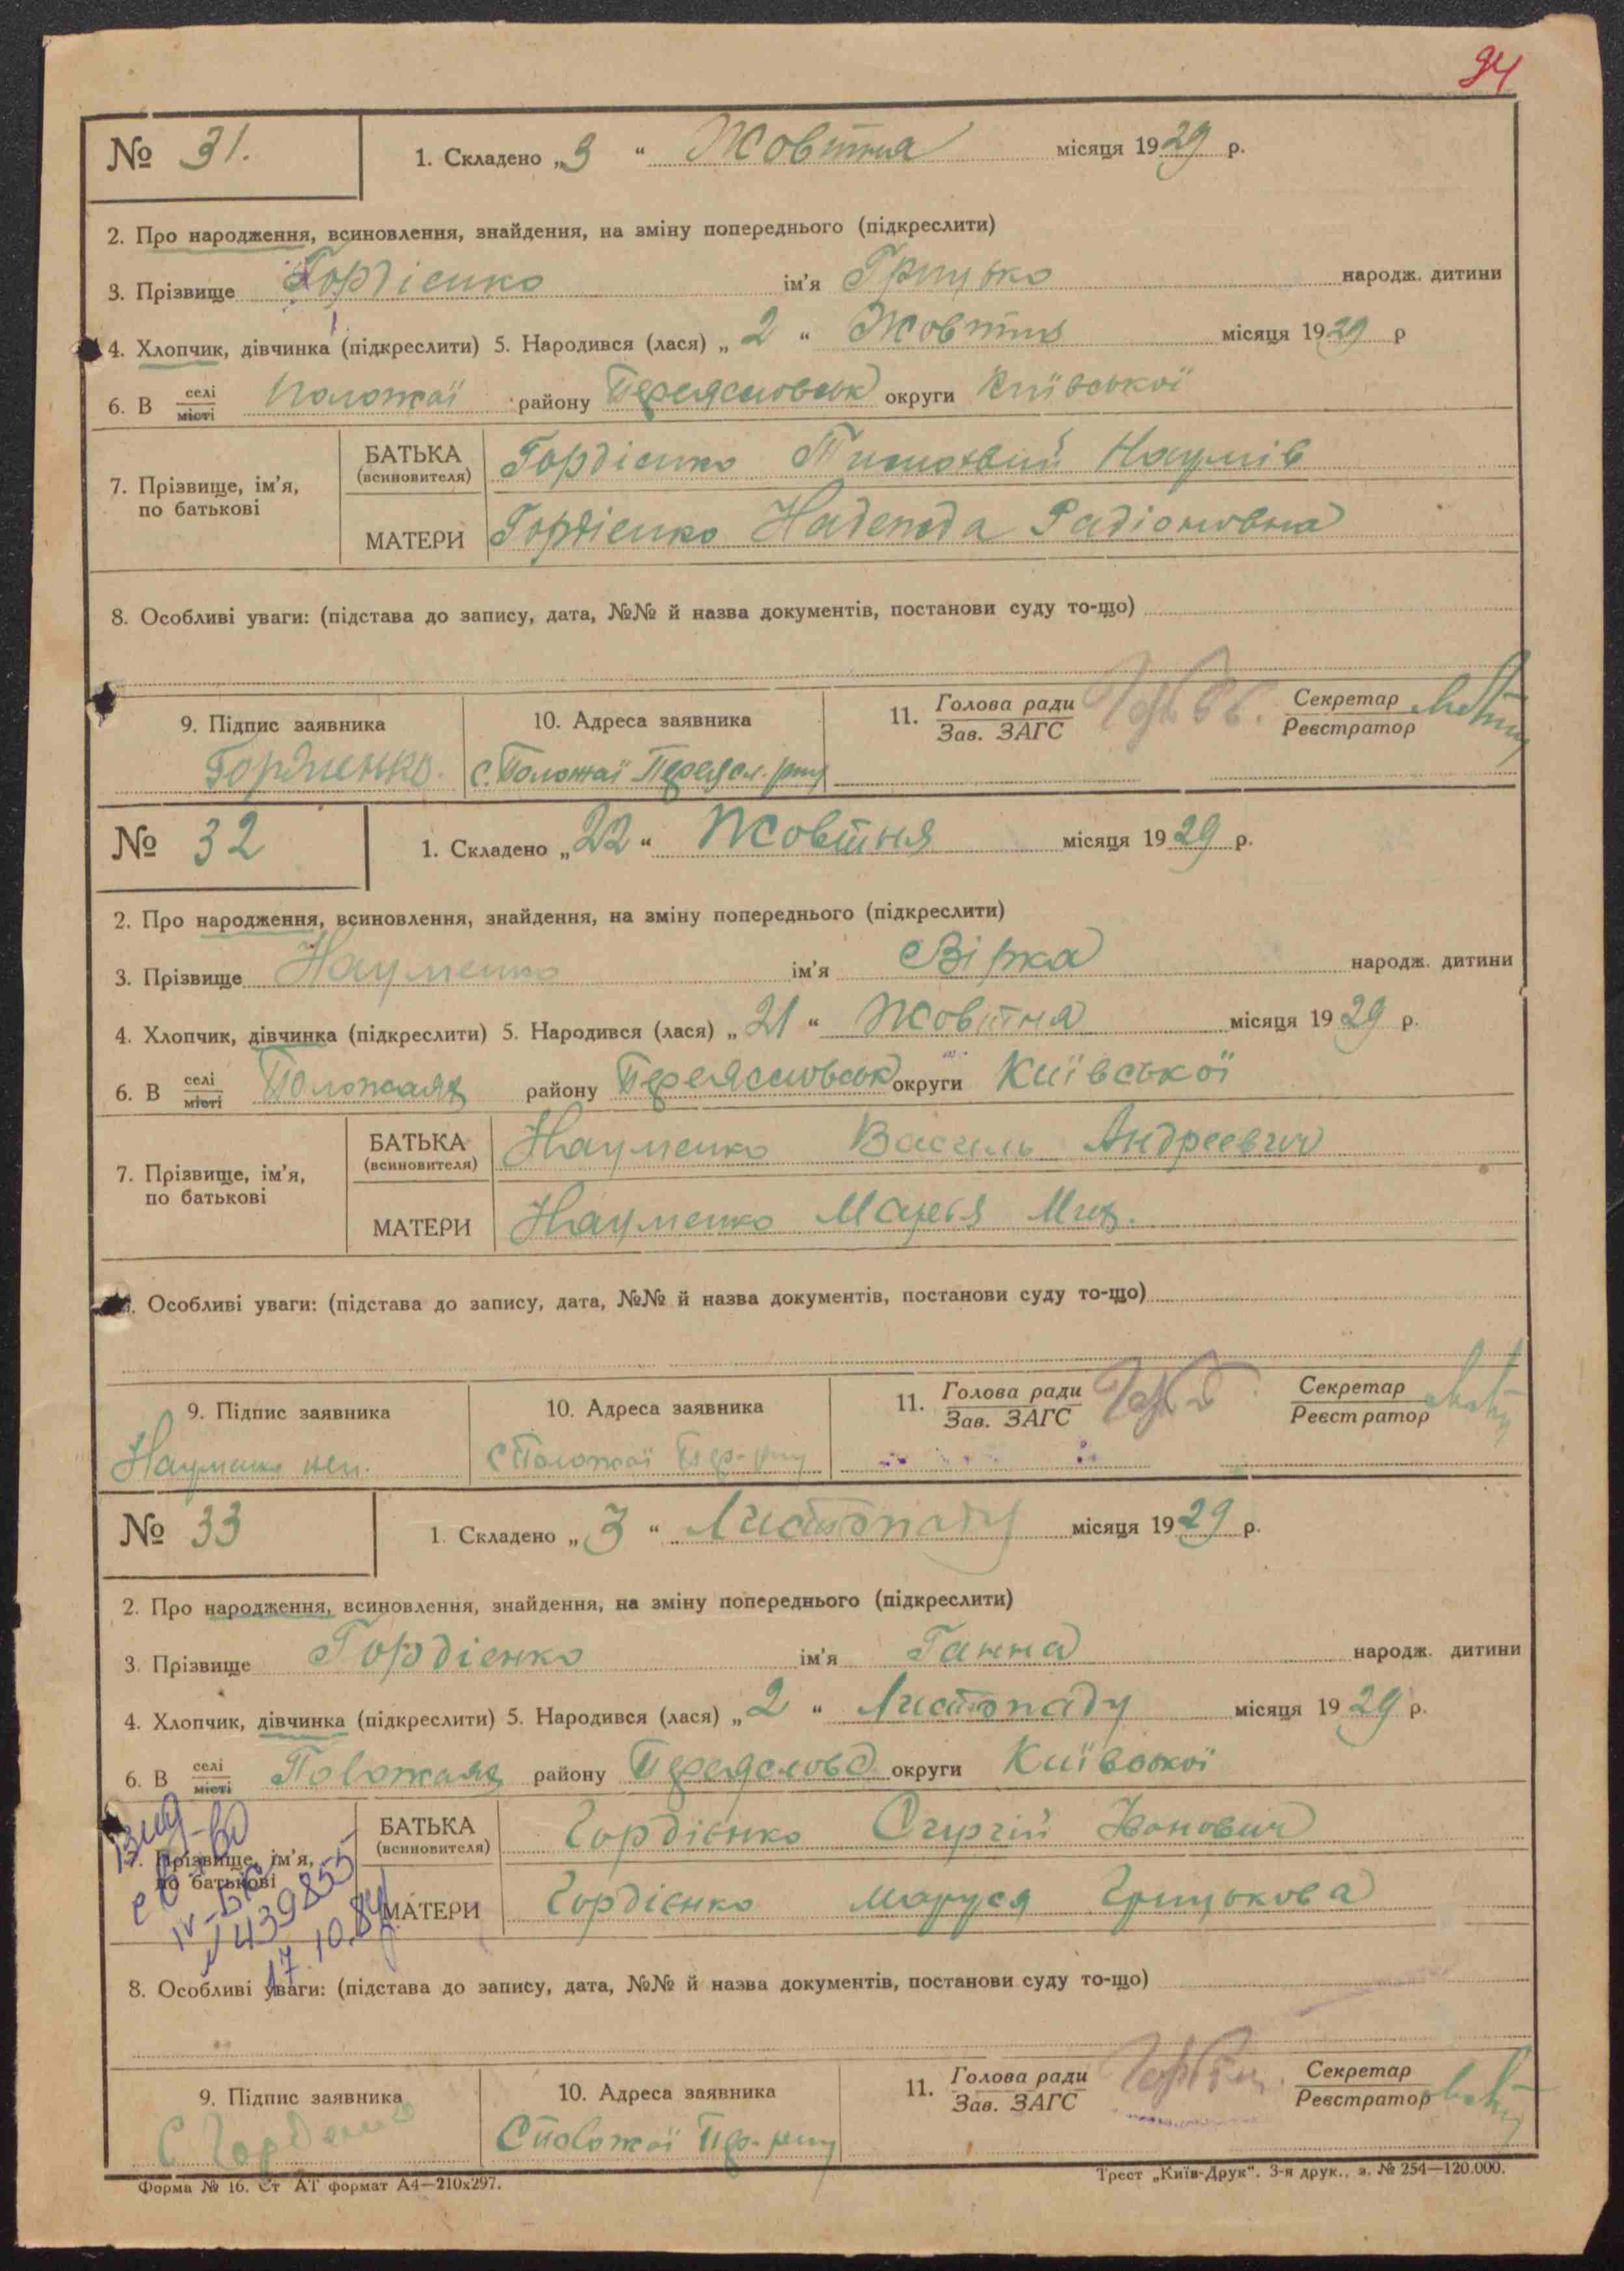 94
№ 31. 1. Складено „3“ Жовтня місяця 1929 р.
2. Про народження, всиновлення, знайдення, на зміну попереднього (підкреслити)
3. Прізвище Гордієнко ім'я Грицько народж. дитини
4. Хлопчик, дівчинка (підкреслити) 5. Народився (лася) „2“ Жовтня місяця 1929 р
6. В селі місті Положаї району Переясловськ округи Київської
7. Прізвище, ім'я, по батькові
БАТЬКА (всиновителя) Гордієнко Тимохвий Наумів
МАТЕРИ Гордієнко Надежда Радіоновна
8. Особливі уваги: (підстава до запису, дата, №№ й назва документів, постанови суду то-що)
9. Підпис заявника 10. Адреса заявника 11. Голова ради Зав. ЗАГС Секретар Реєстратор
Гордиенко. с. Положаї Переясл.
№ 32 1. Складено „22“ Жовтня місяця 1929 р.
2. Про народження, всиновлення, знайдення, на зміну попереднього (підкреслити)
3. Прізвище Науменко ім'я Вірка народж. дитини
4. Хлопчик, дівчинка (підкреслити) 5. Народився (лася) „21“ Жовтня місяця 1929 р.
6. В селі місті Положаях району Переясловськ округи Київської
7. Прізвище, ім'я, по батькові
БАТЬКА (всиновителя) Науменко Василь Андреевич
МАТЕРИ Науменко Марья Мих.
Особливі уваги: (підстава до запису, дата, №№ й назва документів, постанови суду то-що)
9. Підпис заявника 10. Адреса заявника 11. Голова ради Зав. ЗАГС Секретар Реєстратор
Науменко с Положаї Пер-
№ 33 1. Складено „3“ Листопаду місяця 1929 р.
2. Про народження, всиновлення, знайдення, на зміну попереднього (підкреслити)
3. Прізвище Гордієнко ім'я Ганна народж. дитини
4. Хлопчик, дівчинка (підкреслити) 5. Народився (лася) „2“ Листопаду місяця 1929 р.
6. В селі місті Положаях району Переясловс округи Київської
7. Прізвище, ім'я, по батькові
БАТЬКА (всиновителя) Гордієнко Сергій Іванович
МАТЕРИ Гордієнко Маруся Грицькова
IV-БК
439855
17.10.84
8. Особливі уваги: (підстава до запису, дата, №№ й назва документів, постанови суду то-що)
9. Підпис заявника 10. Адреса заявника 11. Голова ради Зав. ЗАГС Секретар Реєстратор
С Положаї Пер-
Форма № 16. Ст АТ формат А4—210х297. Трест „Київ-Друк“. 3-я друк., з. № 254—120.000.